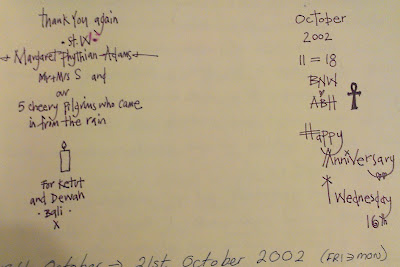 thank you again
• St W •
Margaret Phythian-Adams
Mr + Mrs S and
our
5 cheery pilgrims who came
in from the rain
For Ketut
and Dewah
• Bali •
X
October
2002
11 = 18
BNW
ABH
Happy
Anniversary
Wednesday
16th
October → 21st October 2002 (FRI → MON)